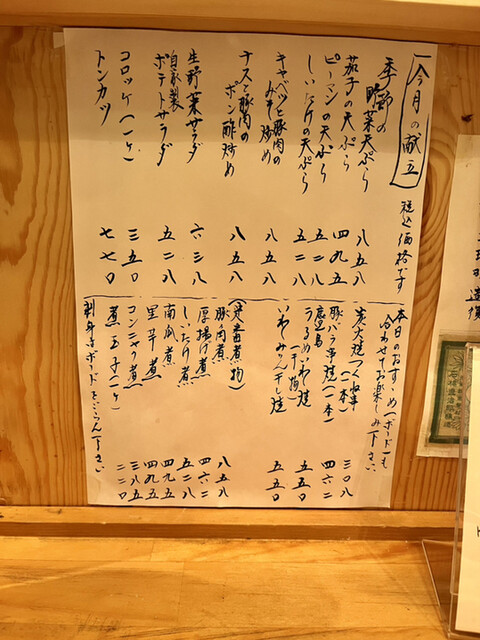 今月の献立 税込価格です
季節の
野菜天ぷら 八五八
茄子の天ぷら 四九五
ピーマンの天ぷら 五二八
しいたけの天ぷら 五二八
キャベツと豚肉の
みそ炒め 八五八
ナスと豚肉の
ポン酢炒め 八五八
生野菜サラダ 六三八
自家製
ポテトサラダ 五二八
コロッケ(一ケ) 三五〇
トンカツ 七七〇
本日のおすすめ(ボード)も
合わせてお楽しみ下さい。
(一本) 三〇八
豚バラ串焼(一本) 四六二
鹿児島
うるめいわし焼 五五〇
(干物)
いわしみりん干し焼 五五〇
(定番煮物)
豚角煮 八五八
厚揚げ煮 四六二
しいたけ煮 五二八
南瓜煮 四九五
里芋煮 四九五
コンニャク煮 三八五
煮玉子(一ケ) 二二〇
刺身はボードをごらん下さい